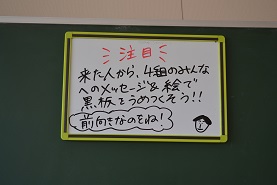 注目
来た人から、4組のみんな
へのメッセージ&絵で
黒板をうめつくそう!!
前向きなのをね!